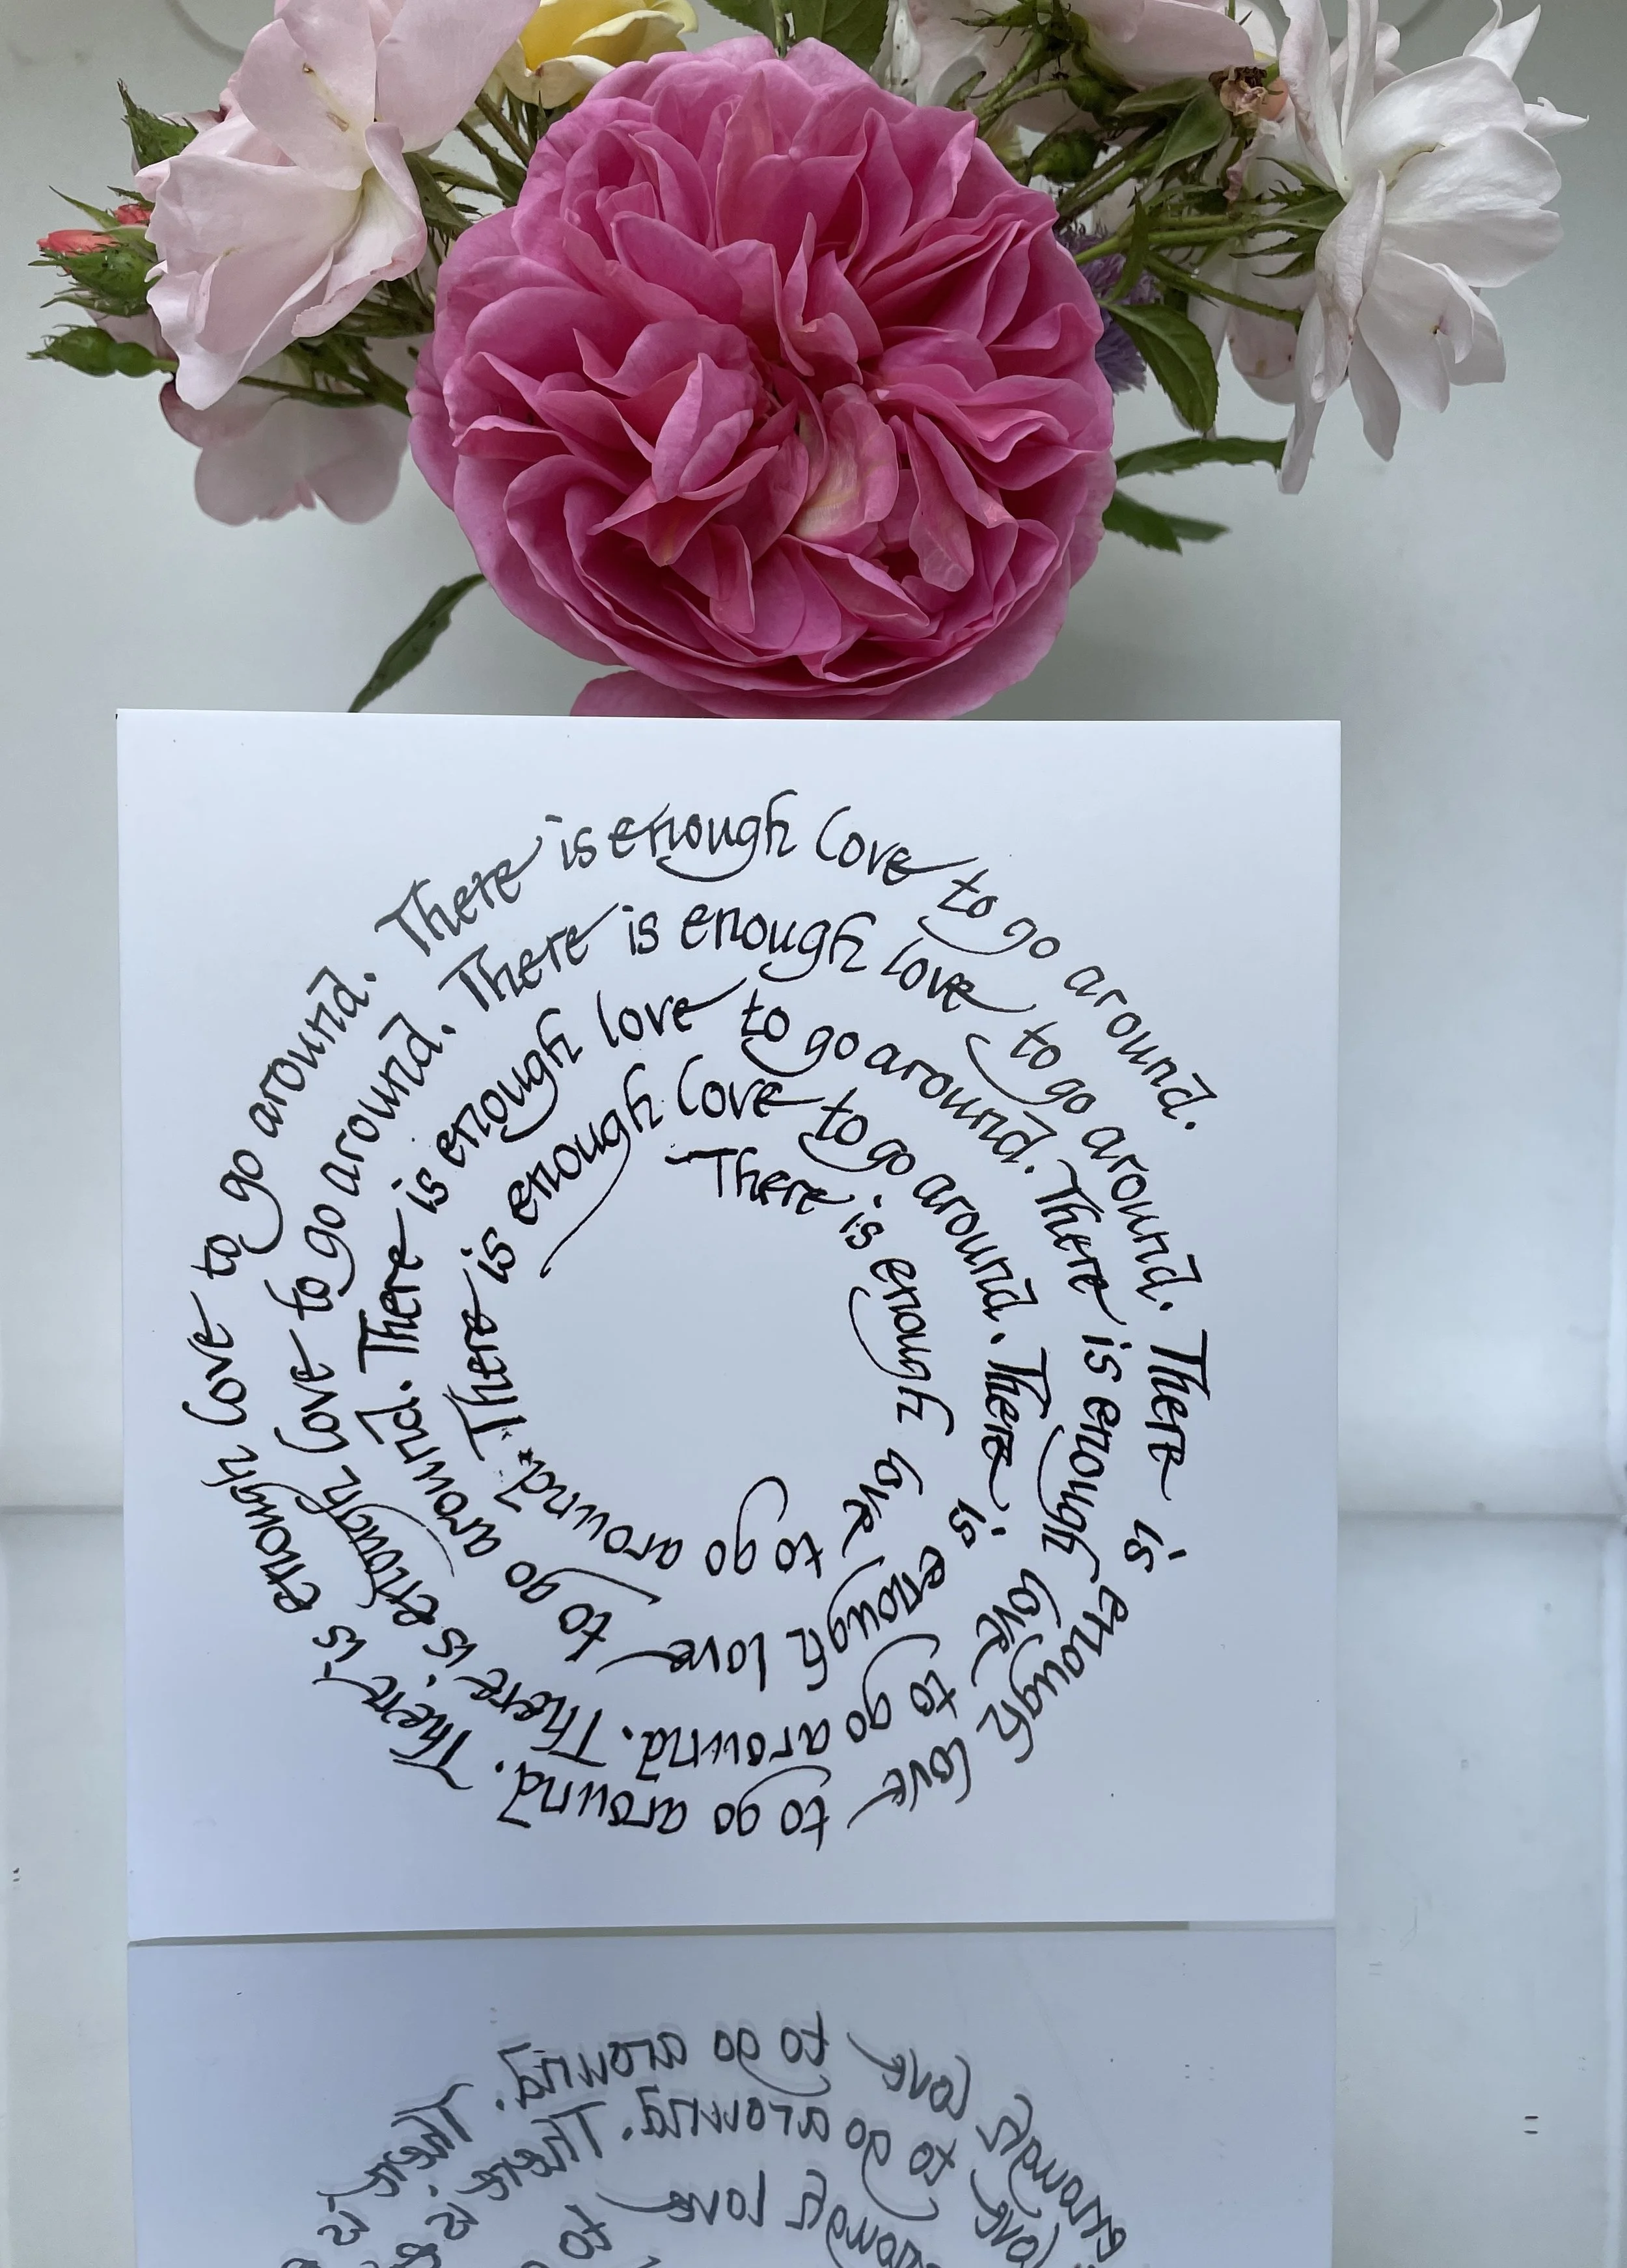 There is enough love to go around.
There is enough love to go around.
There is enough love to go around.
There is enough love to go around.
There is enough love to go around.
There is enough love to go around.
There is enough love to go around.
There is enough love to go around.
There is enough love to go around.
There is enough love to go around.